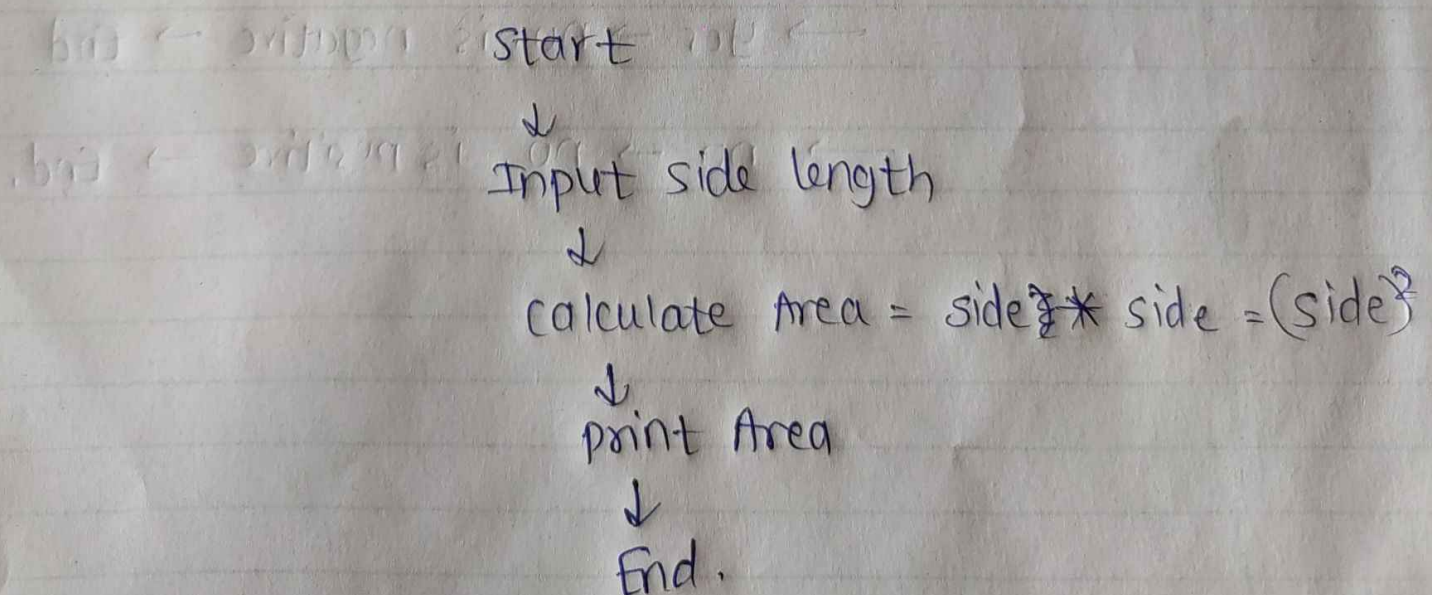 start
↓
Input side length
↓
calculate Area = side * side = (side)²
↓
print Area
↓
End.